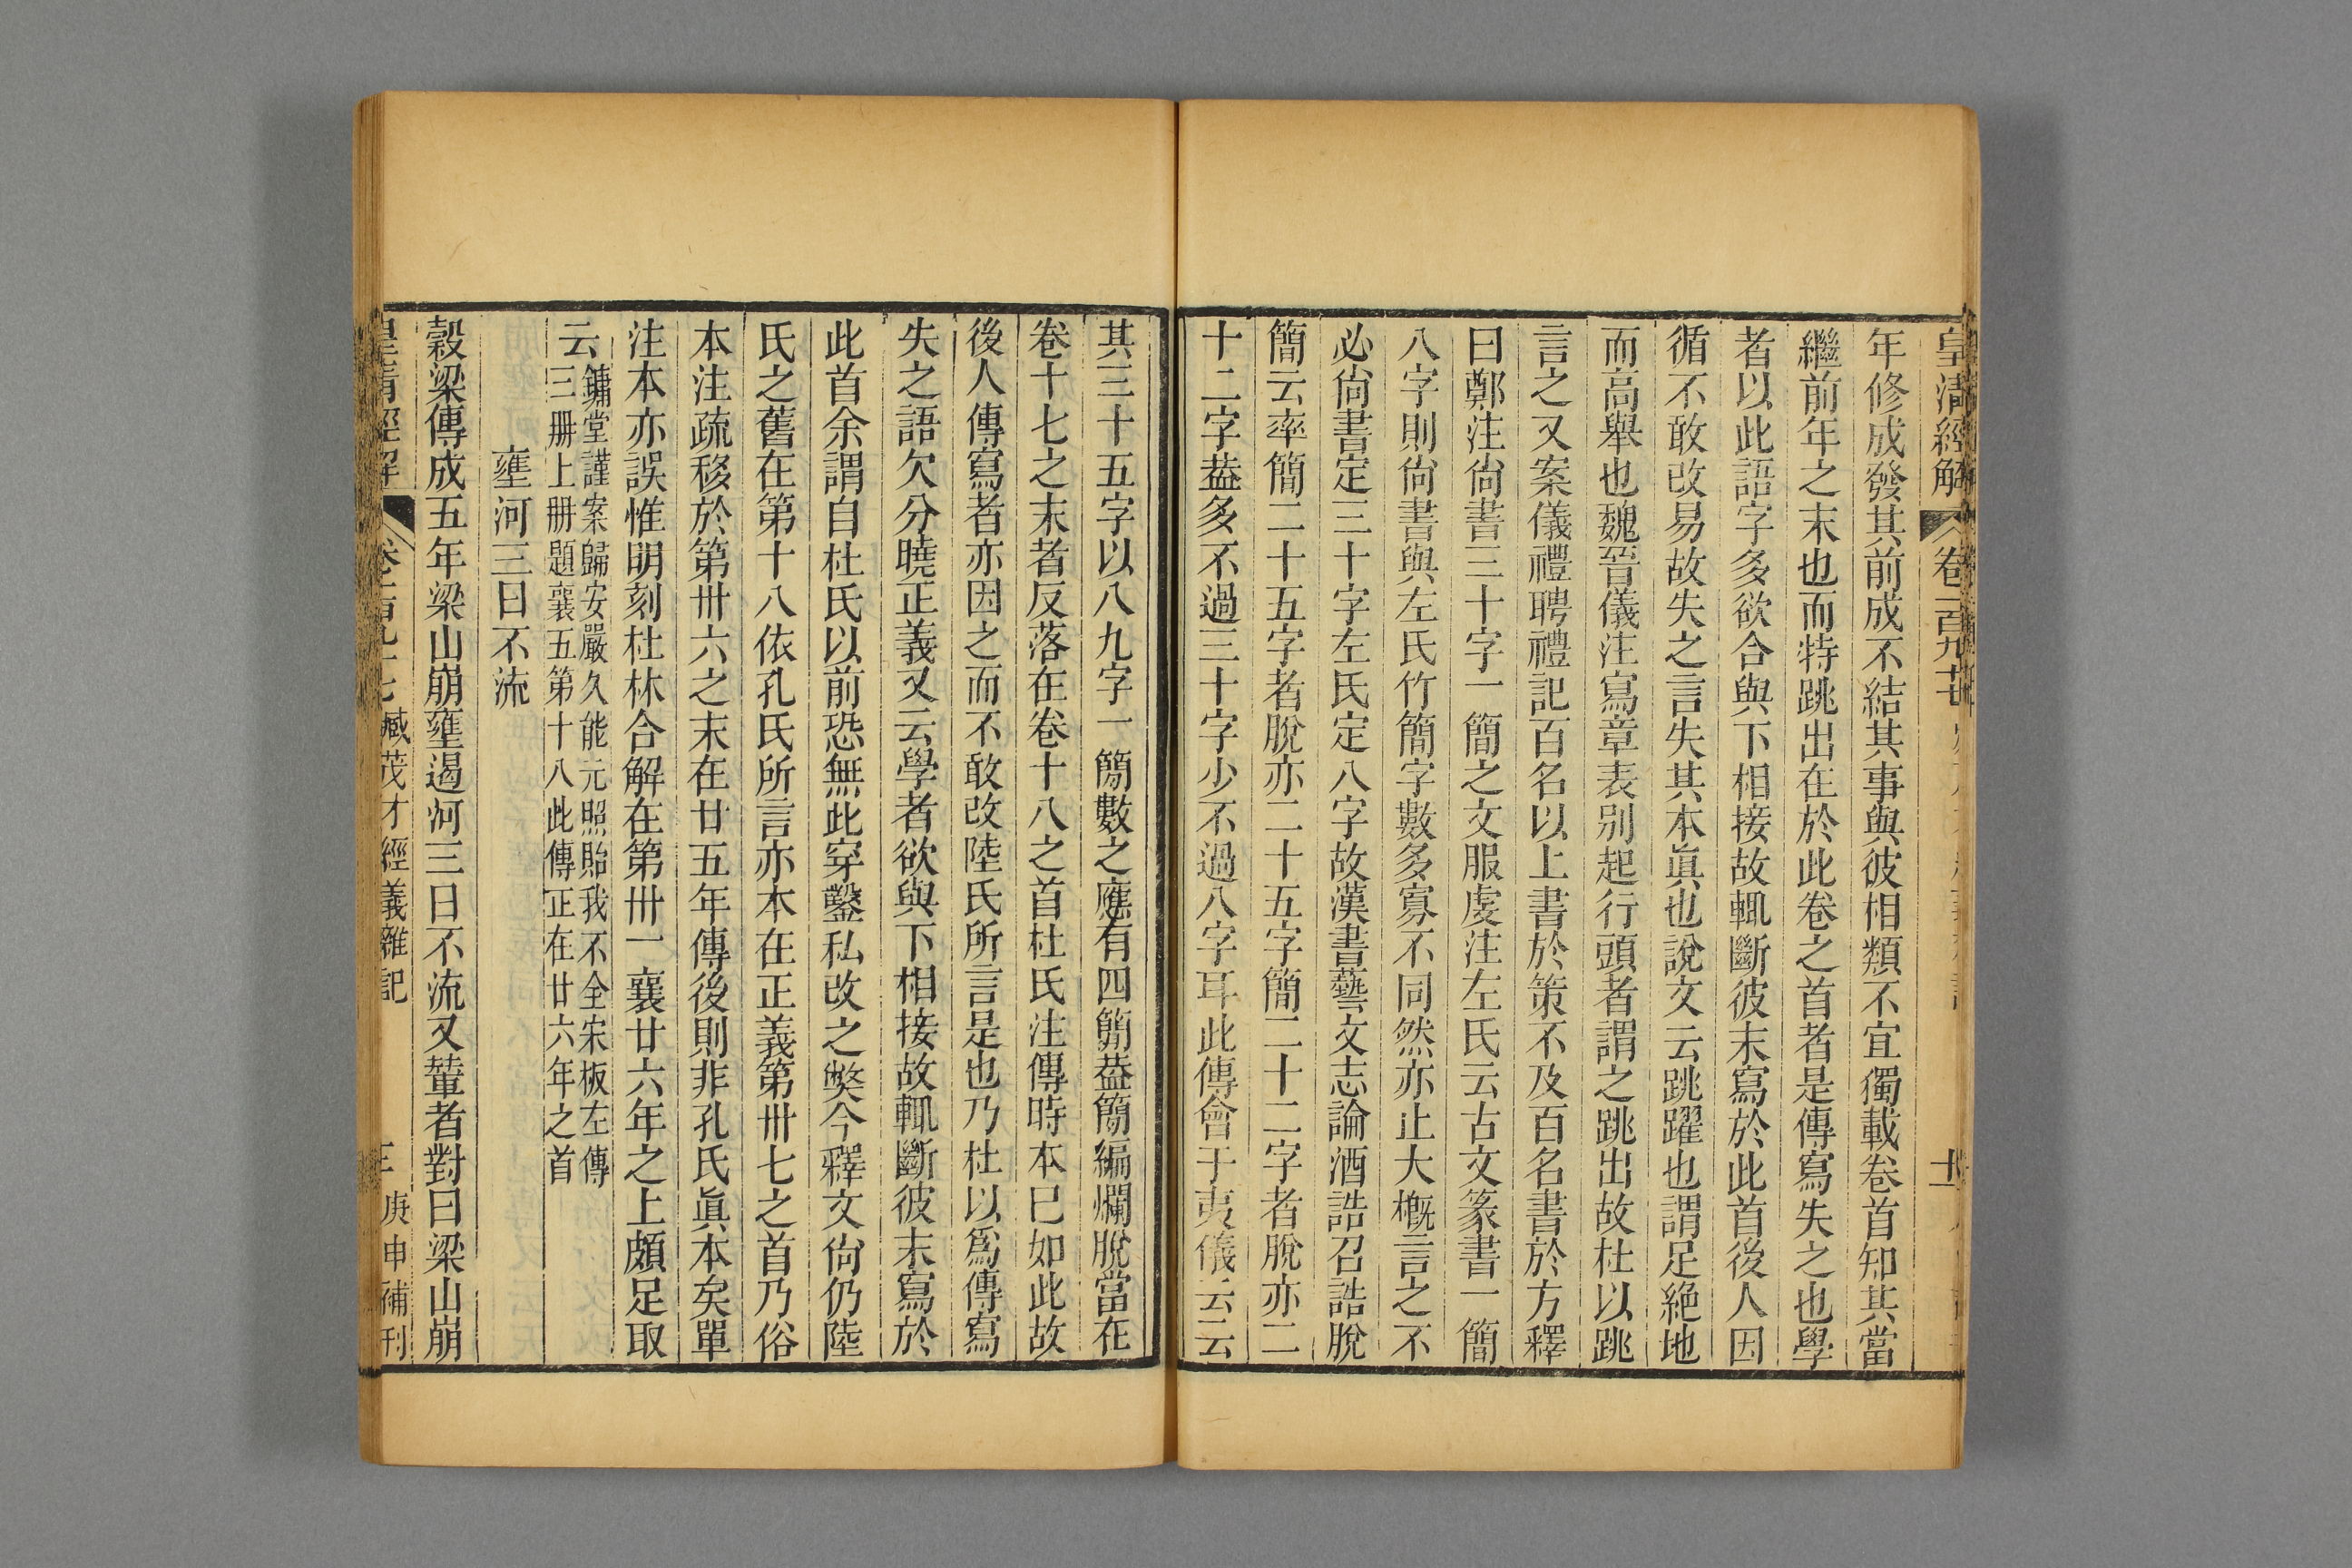 皇清經解 卷一百九十七
年修成發其前成不結其事與彼相類不宜獨載卷首知其當
繼前年之末也而特跳出在於此卷之首者是傳寫失之也學
者以此語字多欲合與下相接故輒斷彼末寫於此首後人因
循不敢改易故失之言失其本眞也說文云跳躍也謂足絶地
而高舉也魏晉儀注寫章表别起行頭者謂之跳出故杜以跳
言之又案儀禮聘禮記百名以上書於策不及百名書於方釋
曰鄭注尙書三十字一簡之文服虔注左氏云古文篆書一簡
八字則尙書與左氏竹簡字數多寡不同然亦止大槪言之不
必尙書定三十字左氏定八字故漢書藝文志論酒誥召誥脫
簡云率簡二十五字者脫亦二十五字簡二十二字者脫亦二
十二字葢多不過三十字少不過八字耳此傳會于夷儀云云
其三十五字以八九字一簡數之應有四簡葢簡編爛脫當在
卷十七之末者反落在卷十八之首杜氏注傳時本已如此故
後人傳寫者亦因之而不敢改陸氏所言是也乃杜以爲傳寫
失之語欠分曉正義又云學者欲與下相接故輒斷彼末寫於
此首余謂自杜氏以前恐無此穿鑿私改之弊今釋文尙仍陸
氏之舊在第十八依孔氏所言亦本在正義第卅七之首乃俗
本注疏移於第卅六之末在廿五年傳後則非孔氏眞本矣單
注本亦誤惟明刻杜林合解在第卅一襄廿六年之上頗足取
云鏞堂謹案歸安嚴久能元照貽我不全宋板左傳
三册上册題襄五第十八此傳正在廿六年之首
壅河三日不流
穀梁傳成五年梁山崩壅遏河三日不流又輦者對曰梁山崩
皇清經解 卷一百九十七 臧茂才經義雜記 庚申補刊